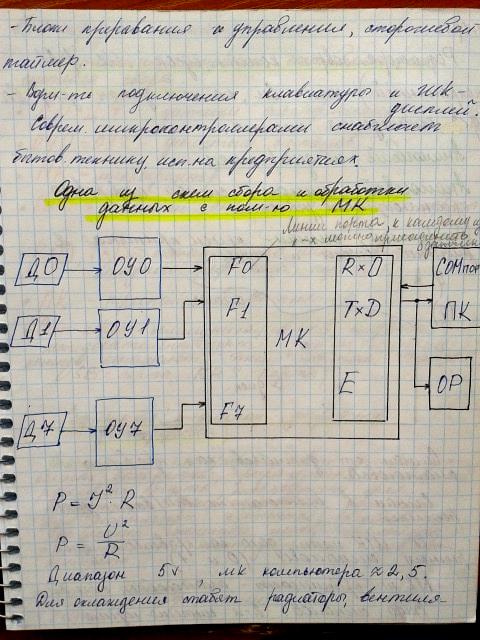 - Блоки прерывания и управления, сторожевой
таймер.
- Возм-ть подключения клавиатуры и ЖК-
дисплей.
Соврем. микроконтроллерами снабжают
бытов. технику, исп. на предприятиях.
Одна из схем сбора и обработки
данных с пом-ю МК
Линии порта, к каждому из
к-х можно присоединить
Д0 ОУ0 F0 RxD COM порт
Д1 ОУ1 F1 МК TxD ПК
E ОР
Д7 ОУ7 F7
P = I² · R
P = U²/R
Диапазон 5v, мк компьютера ≈ 2,5.
Для охлаждения ставят радиаторы, вентиля